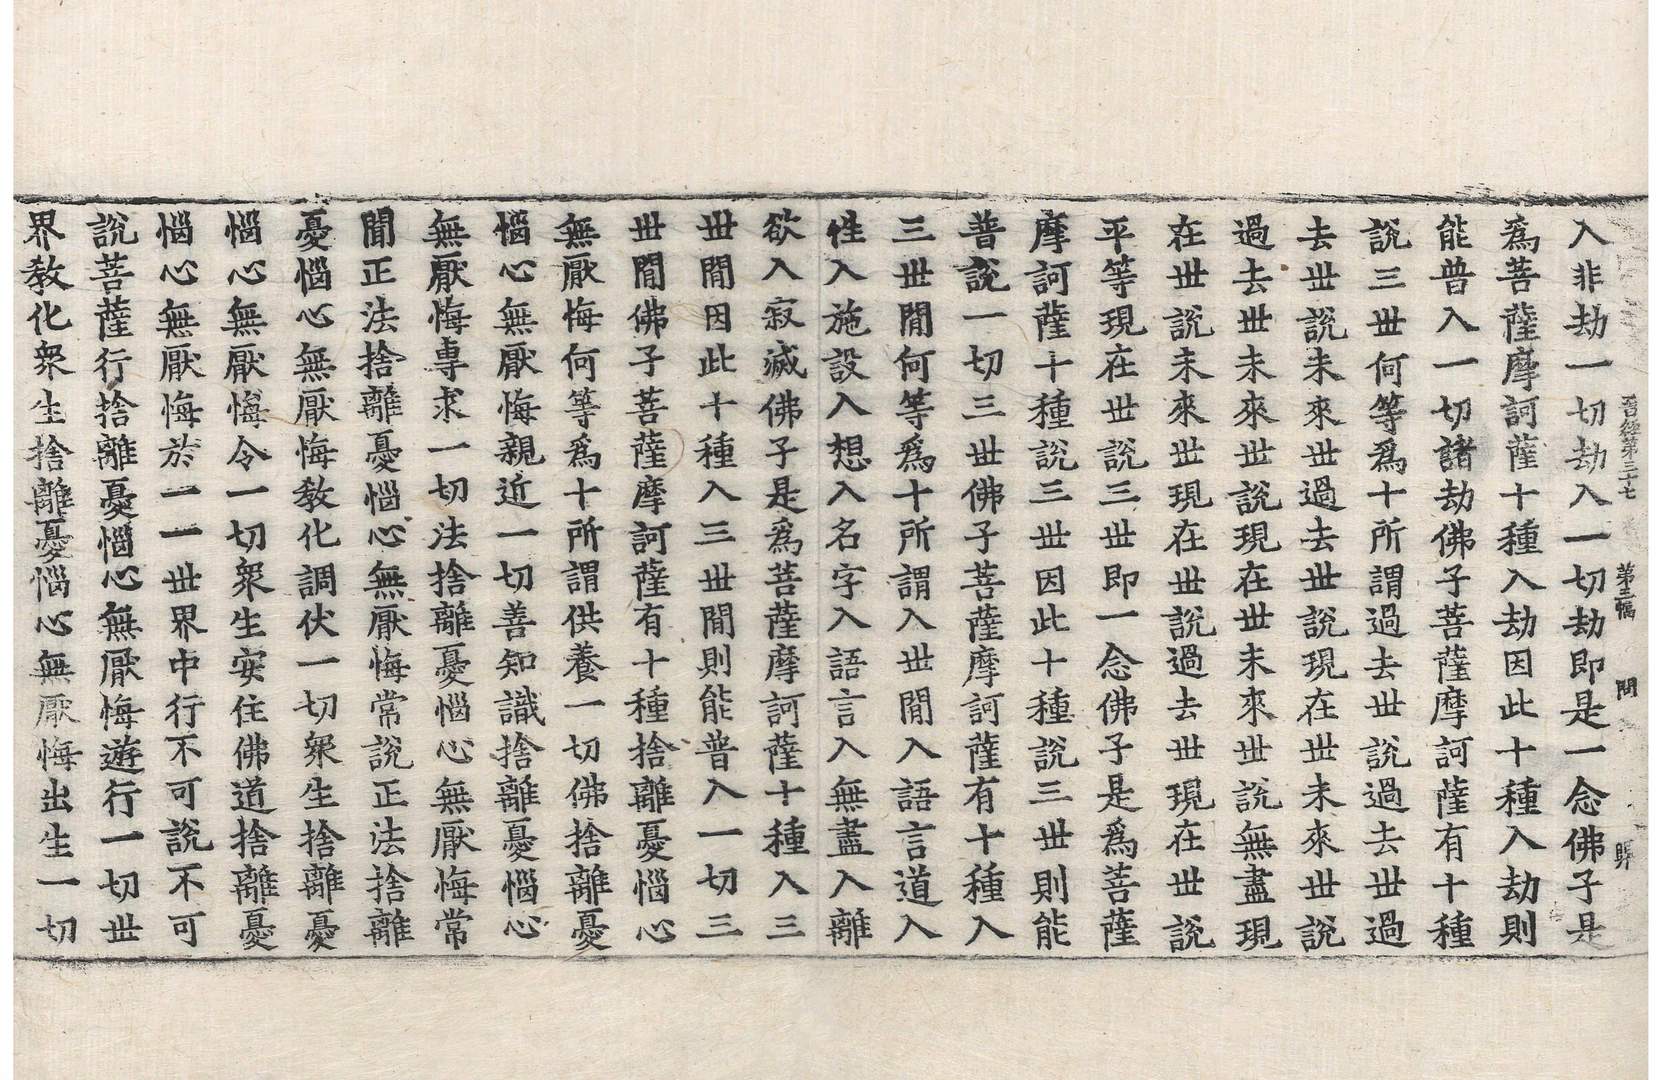 晉經第三十七 第三幅 問
入非劫一切劫入一切劫即是一念佛子是
爲菩薩摩訶薩十種入劫因此十種入劫則
能普入一切諸劫佛子菩薩摩訶薩有十種
說三世何等爲十所謂過去世說過去世過
去世說未來世過去世說現在世未來世說
過去世未來世說現在世未來世說無盡現
在世說未來世現在世說過去世現在世說
平等現在世說三世即一念佛子是爲菩薩
摩訶薩十種說三世因此十種說三世則能
普說一切三世佛子菩薩摩訶薩有十種入
三世閒何等爲十所謂入世閒入語言道入
性入施設入想入名字入語言入無盡入離
欲入寂滅佛子是爲菩薩摩訶薩十種入三
世閒因此十種入三世閒則能普入一切三
世閒佛子菩薩摩訶薩有十種捨離憂惱心
無厭悔何等爲十所謂供養一切佛捨離憂
惱心無厭悔親近一切善知識捨離憂惱心
無厭悔專求一切法捨離憂惱心無厭悔常
聞正法捨離憂惱心無厭悔常說正法捨離
憂惱心無厭悔敎化調伏一切衆生捨離憂
惱心無厭悔令一切衆生安住佛道捨離憂
惱心無厭悔於一一世界中行不可說不可
說菩薩行捨離憂惱心無厭悔遊行一切世
界敎化衆生捨離憂惱心無厭悔出生一切